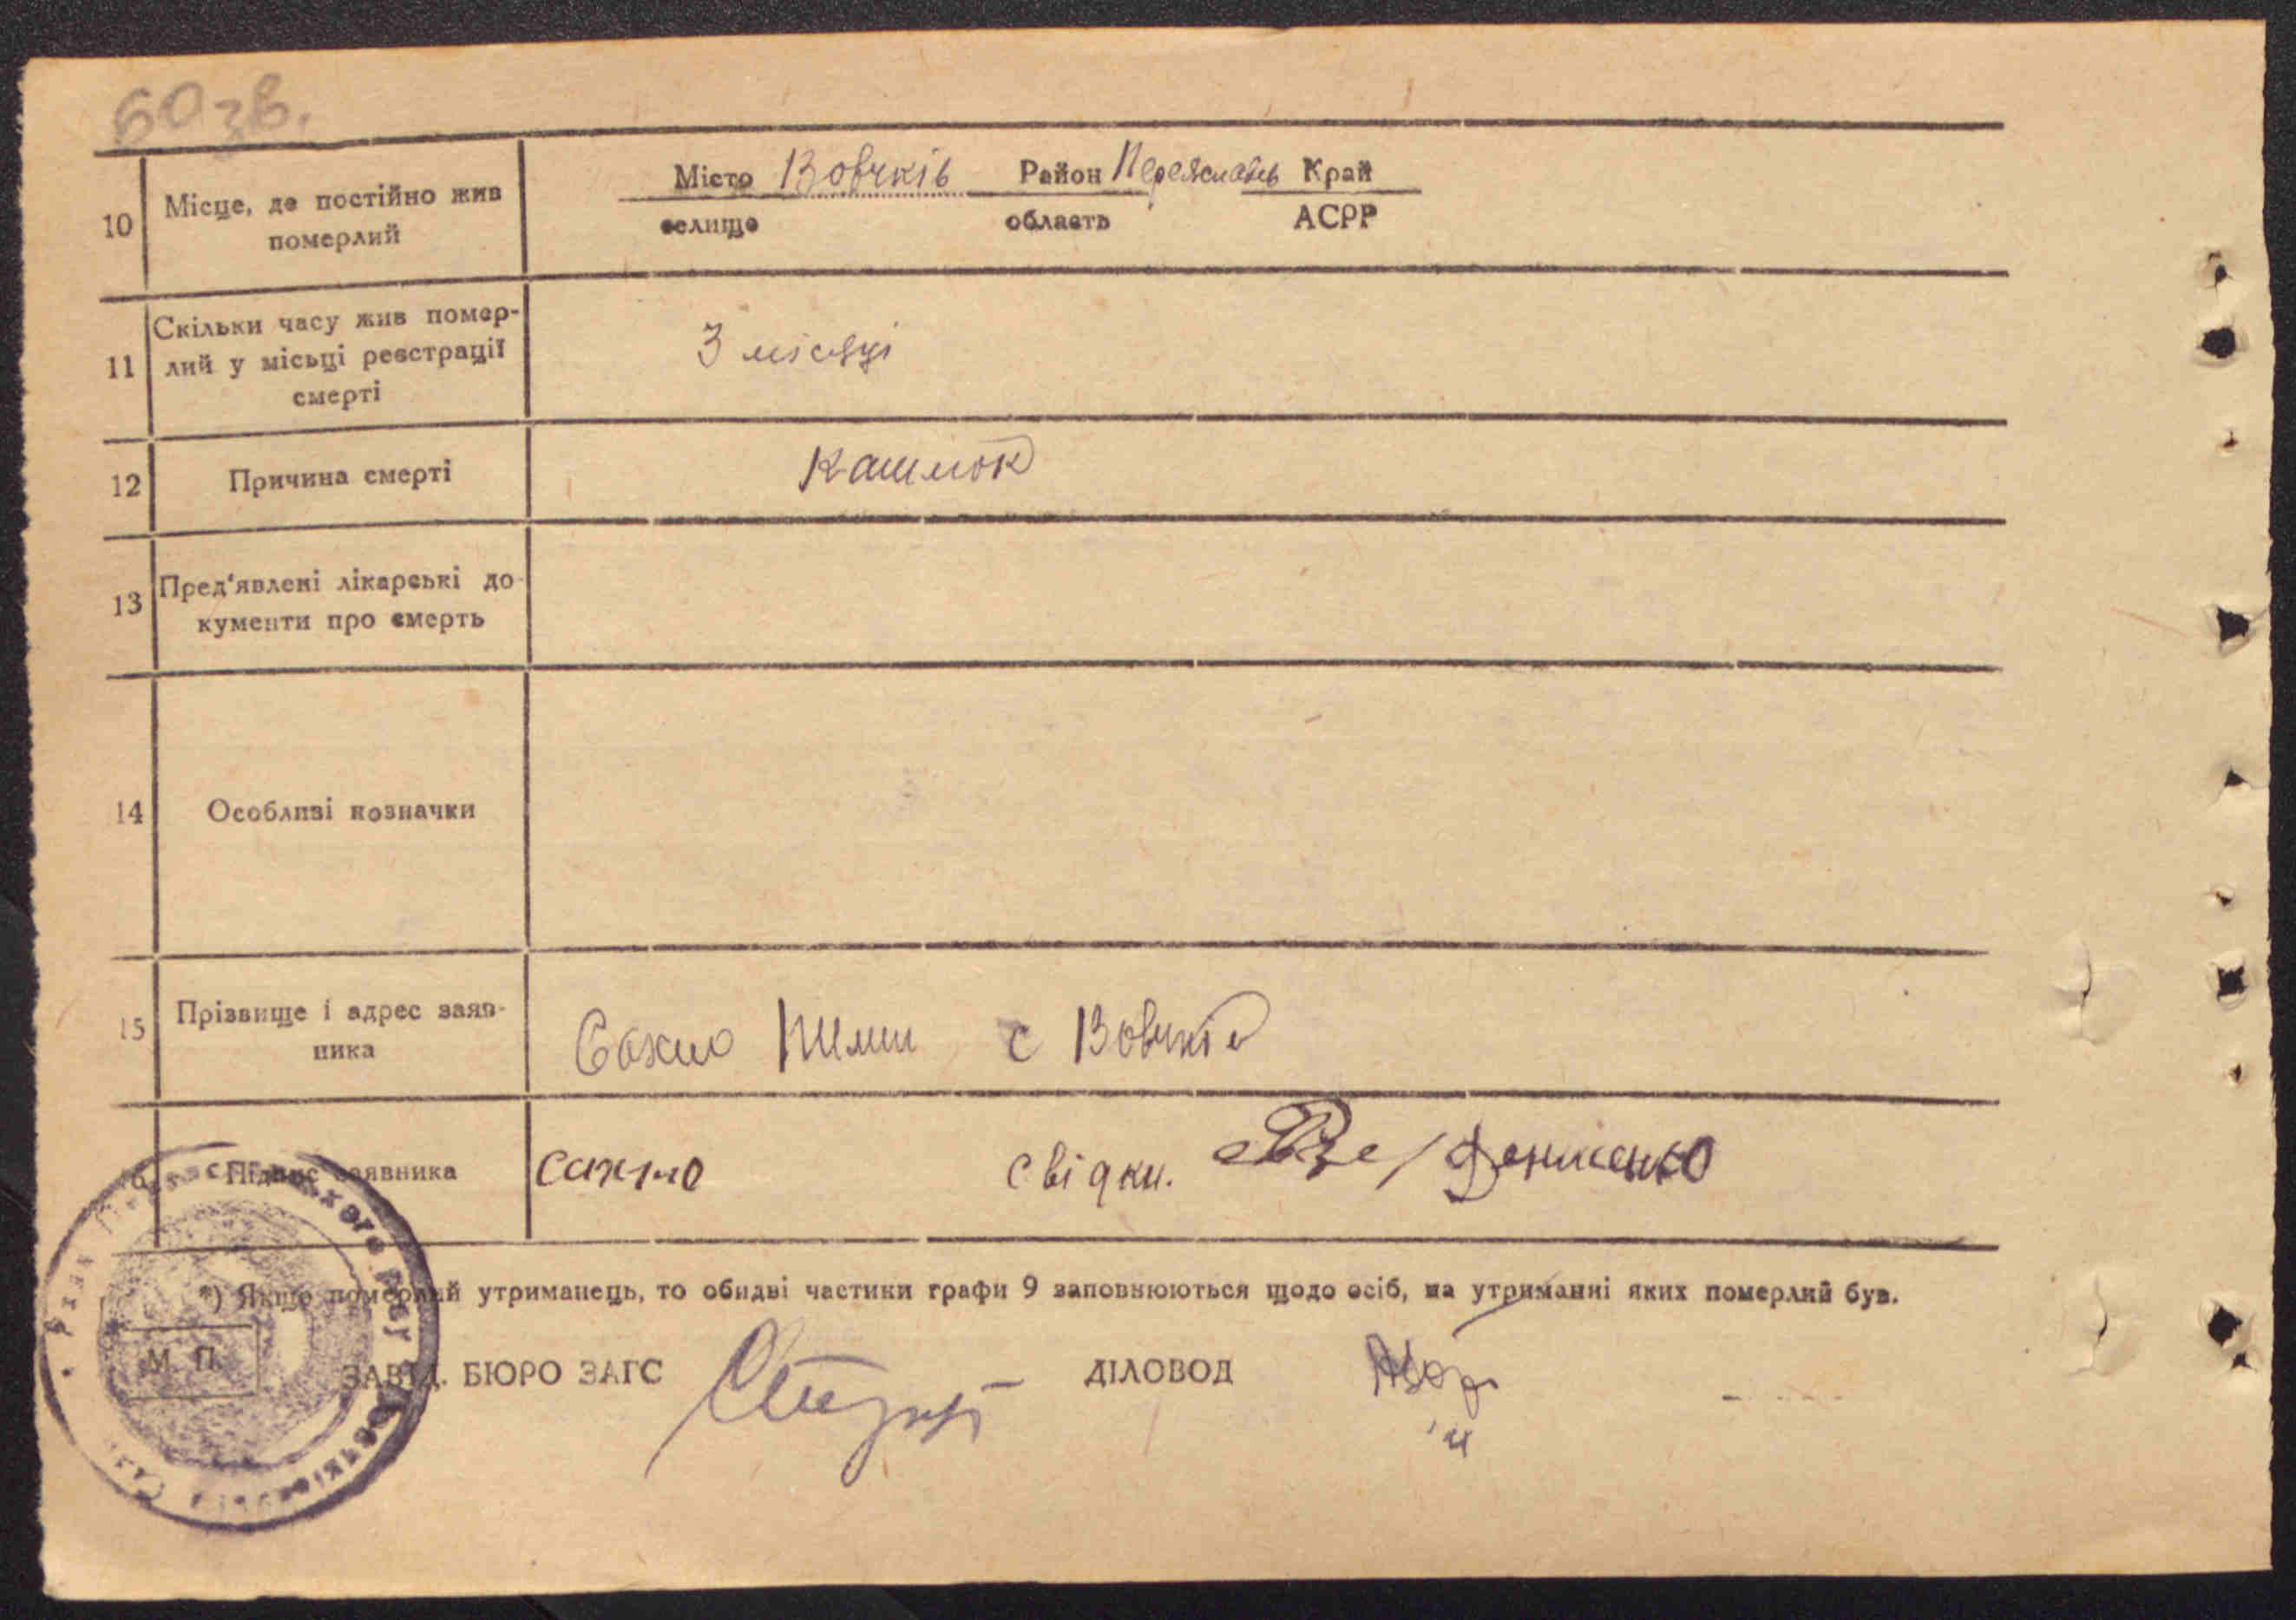 60 зв.
10 Місце, де постійно жив померлий
Місто Вовчків Район Переяславь Край
селище область АСРР
11 Скільки часу жив помер-
лий у місьці реєстрації
смерті
3 місяці
12 Причина смерті
Кашлюк
13 Пред'явлені лікарські до-
кументи про смерть
14 Особливі позначки
15 Прізвище і адрес заяв-
ника
Сахно с Вовчків
16 Підпис заявника
Сахно свідки. / Денисенко
*) Якщо померлий утриманець, то обидві частики графи 9 заповнюються щодо осіб, на утриманні яких померлий був.
М. П.
ЗАВІД. БЮРО ЗАГС ДІЛОВОД